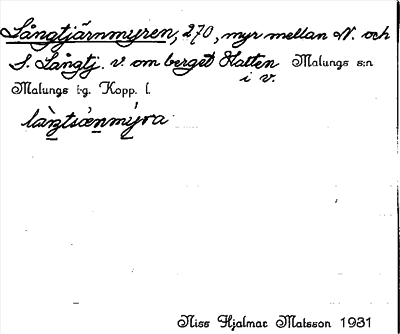 Långtjärnmyren, 270, myr mellan N. och
S. Långtj. v. om berget Hatten Malungs s:n
i v.
Malungs t:g. Kopp. l.
làŋtsæ̀nmýra
Niss Hjalmar Matsson 1931